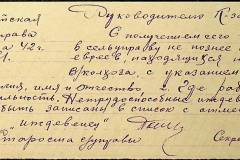 йская Руководителю К-за
рава С получением сего
а 42 г. в сельуправу не позднее
1. евреев, находящихся п
в/колхоза, с указанием
лия, имя и отчество, г. Где раб
альность. Нетрудоспособные иждеве
быть записаны в список с отме
иждевенец"
Староста с/управы Секре